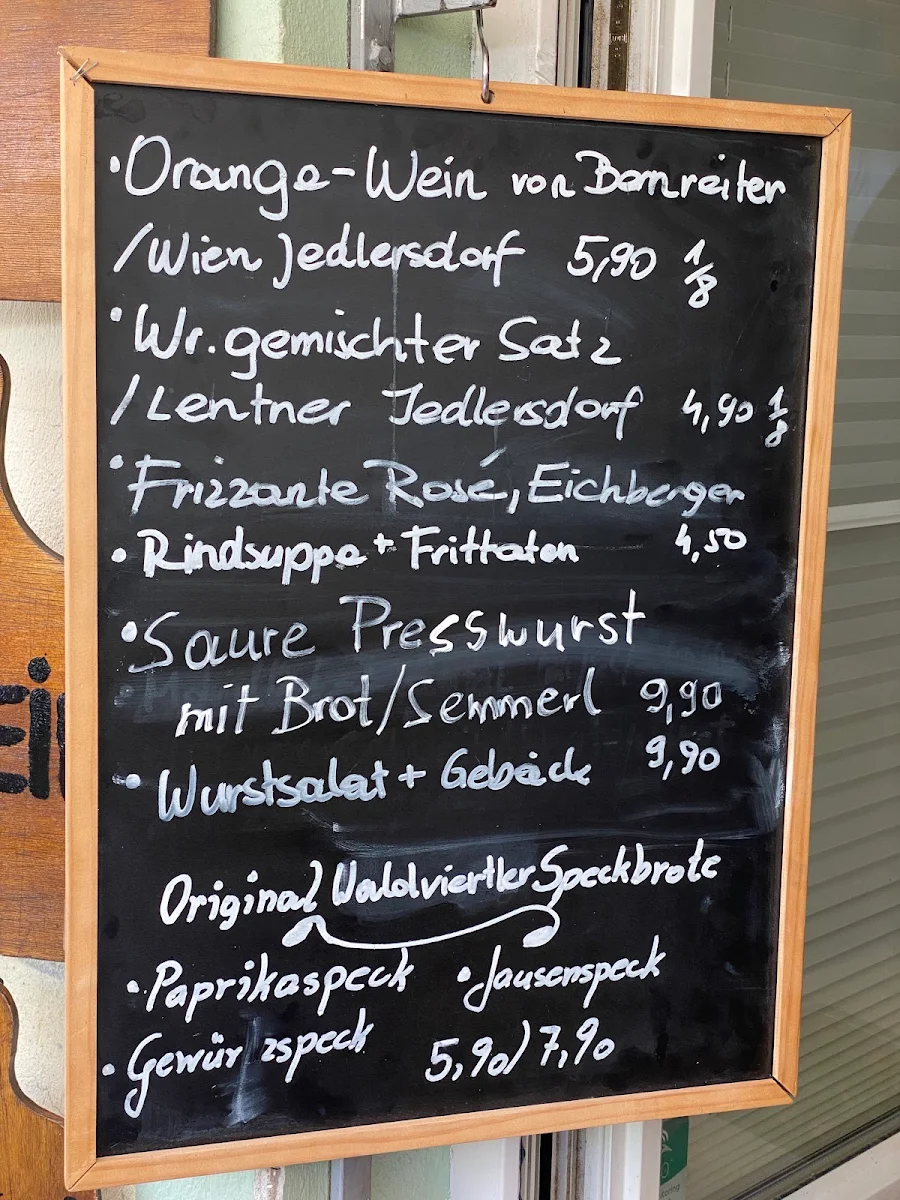 · Orange-Wein von Bernreiter
/Wien Jedlersdorf 5,90 1/8
· Wr. gemischter Satz
/Lentner Jedlersdorf 4,90 1/8
· Frizzante Rosé, Eichberger
· Rindsuppe + Frittaten 4,50
· Saure Presswurst
mit Brot/Semmerl 9,90
· Wurstsalat + Gebäck 9,90
Original Waldviertler Speckbrote
· Paprikaspeck · Jausenspeck
· Gewürzspeck 5,90/7,90